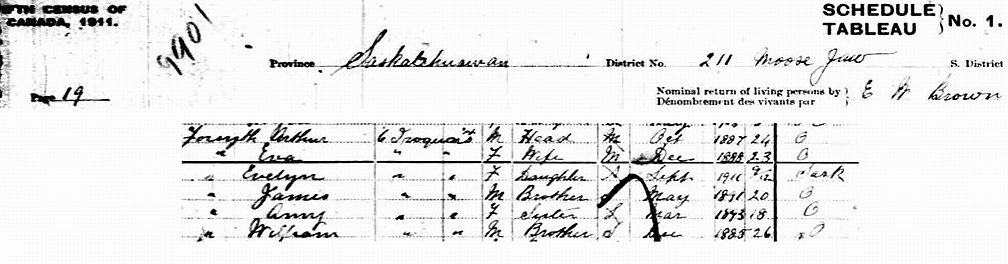 FTH CENSUS OF
CANADA, 1911.
9901
SCHEDULE
TABLEAU } No. 1.
Province Saskatchewan District No. 211 Moose Jaw S. District
Page 19
Nominal return of living persons by
Dénombrement des vivants par } E W Brown
Forsyth Arthur 6 Iroquois st M Head M Oct 1887 24 O
" Eva " " F Wife M Dec 1888 23 O
" Evelyn " " F Daughter S Sept 1911 9/12 Sask
" James " " M Brother S May 1891 20 O
" Amy " " F Sister S Mar 1893 18 O
" William " " M Brother S Dec 1885 26 O